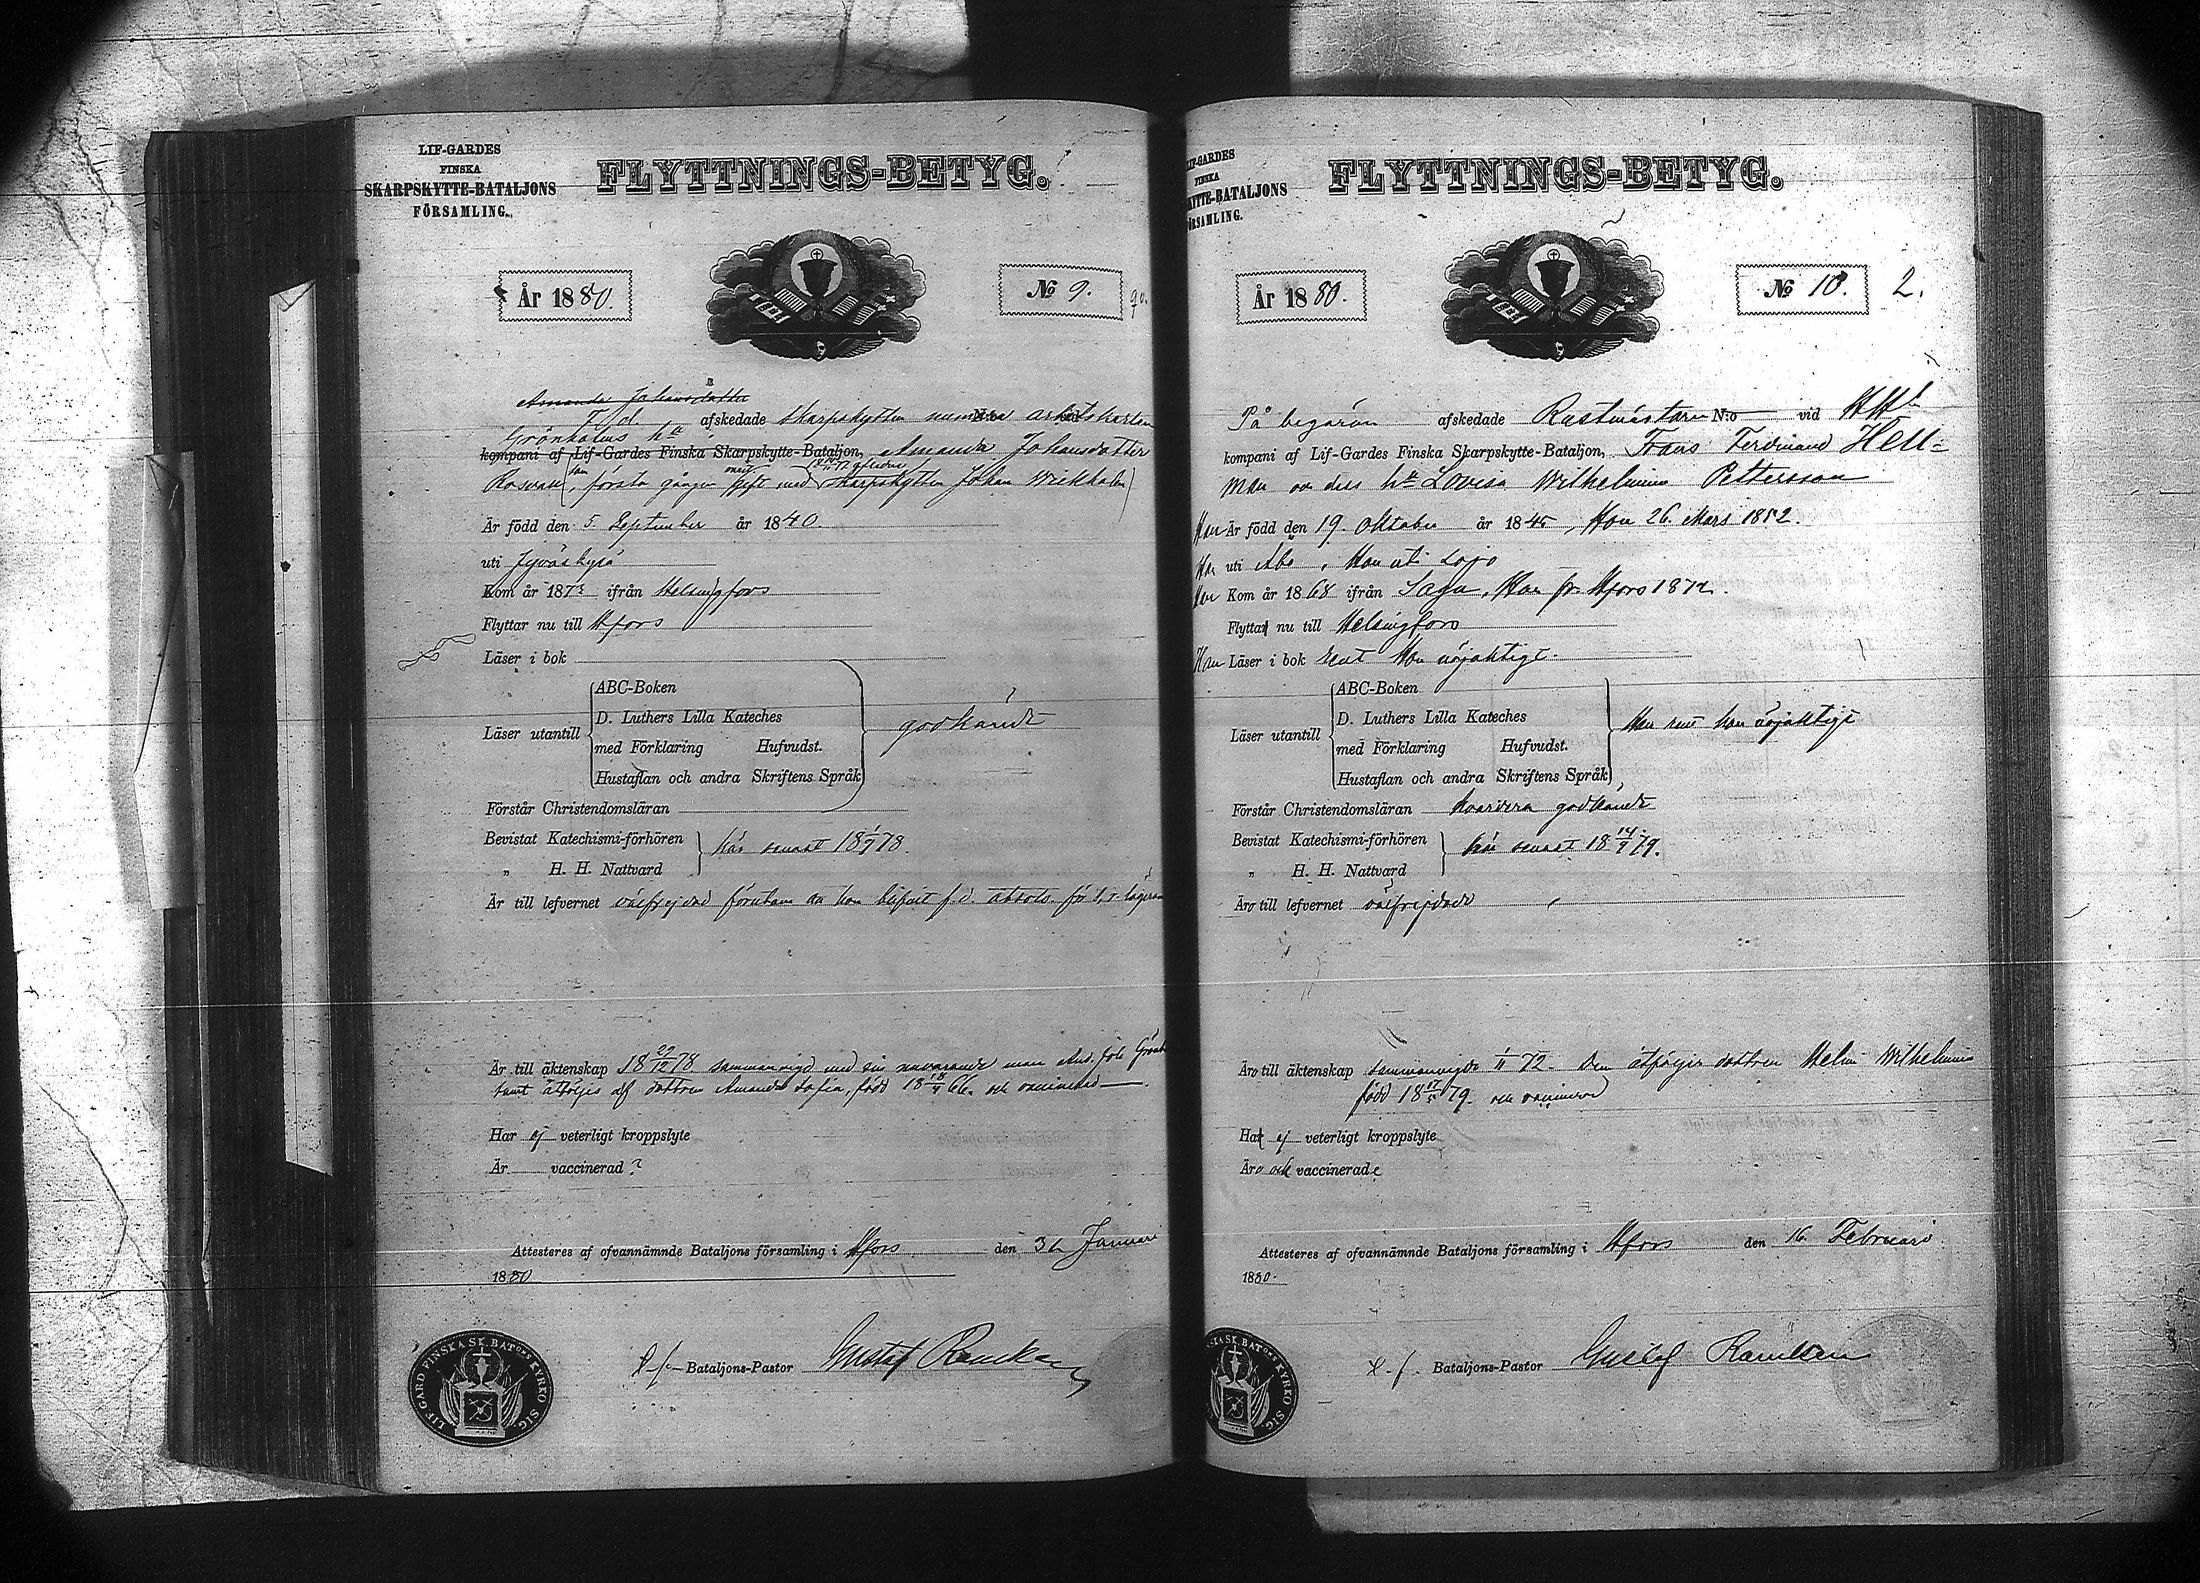 LIF-GARDES
FINSKA
SKARPSKYTTE-BATALJONS
FÖRSAMLING.
FLYTTNINGS-BETYG.
År 1880.
No 9.
Amanda Johansdotter
F. d. afskedade skarpskytten numera arbetskarlen
Grönholms hu
kompani af Lif-Gardes Finska Skarpskytte-Bataljon, Amanda Johansdotter
första gången gift med skarpskytten Johan Wickholm
Är född den 5 September år 1840
uti Jyväskylä
Kom år 187 ifrån Helsingfors
Flyttar nu till Hfors
Läser i bok
Läser utantill
ABC-Boken
D. Luthers Lilla Kateches
med Förklaring Hufvudst.
Hustaflan och andra Skriftens Språk
godkändt
Förstår Christendomsläran
Bevistat Katechismi-förhören
„ H. H. Nattvard
här senast 18 1/9 78
Är till lefvernet välfrejdad förutom att hon blifvit f. d. absolv. för
Är till äktenskap 18 22/12 78 sammanvigd med sin nuvarande man And. Joh. Grönh
samt åtföljes af dottren Amanda Sofia, född 18 18/4 66. och vaccinerad
Har ej veterligt kroppslyte
Är vaccinerad?
Attesteres af ofvannämnde Bataljons församling i Hfors den 31 Januari
1880
t. f. Bataljons-Pastor Gustaf
LIF-GARD FINSKA SK. BAT:ONS KYRKO SIG.
LIF-GARDES
FINSKA
KYTTE-BATALJONS
FÖRSAMLING.
FLYTTNINGS-BETYG.
År 1880.
No 10.
2.
På begäran afskedade Rustmästaren N:o vid
kompani af Lif-Gardes Finska Skarpskytte-Bataljon, Frans Ferdinand Hell=
man och dess hu Lovisa Wilhelmina Pettersson
Han Är född den 19. Oktober år 1845, Hon 26. Mars 1852.
Han uti Åbo, Hon uti Lojo
Han Kom år 1868 ifrån Sagu, Hon fr. Hfors 1872.
Flytta nu till Helsingfors
Han Läser i bok rent Hon nöjaktigt.
Läser utantill
ABC-Boken
D. Luthers Lilla Kateches
med Förklaring Hufvudst.
Hustaflan och andra Skriftens Språk
Han rent hon nöjaktigt
Förstår Christendomsläran hvardera godkändt
Bevistat Katechismi-förhören
„ H. H. Nattvard
här senast 18 14/9 79.
Äro till lefvernet välfrejdade
Äro till äktenskap sammanvigda 1/11 72. Den åtföljer dottren Helmi Wilhelmina
född 18 17/5 79. och vaccinerad
Ha ej veterligt kroppslyte
Äro och vaccinerade
Attesteres af ofvannämnde Bataljons församling i Hfors den 16. Februari
1880.
t. f. Bataljons-Pastor Gustaf
SKA SK. BAT:ONS KYRKO SIG.